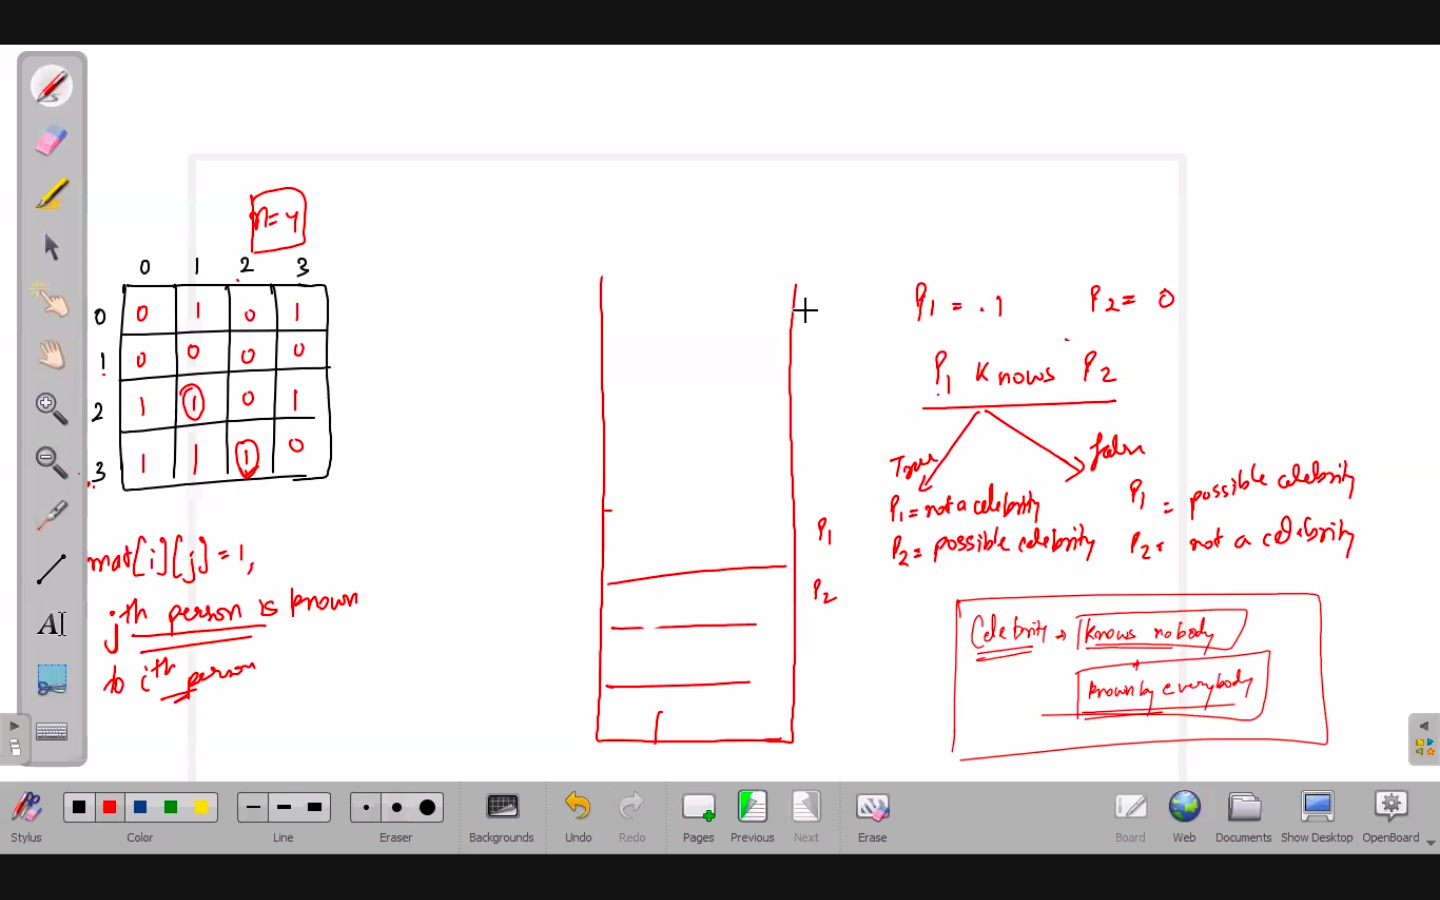 n=4
0 1 2 3
0 0 1 0 1
1 0 0 0 0
2 1 1 0 1
3 1 1 1 0
mat[i][j]=1,
jth person is known
to ith person
P1
P2
P1 = .1 P2 = 0
P1 knows P2
True
false
P1 = not a celebrity
P2 = possible celebrity
P1 = possible celebrity
P2 = not a celebrity
Celebrity → knows nobody
+
known by everybody
A
Stylus
Color
Line
Eraser
Backgrounds
Undo
Redo
Pages
Previous
Next
Erase
Board
Web
Documents
Show Desktop
OpenBoard